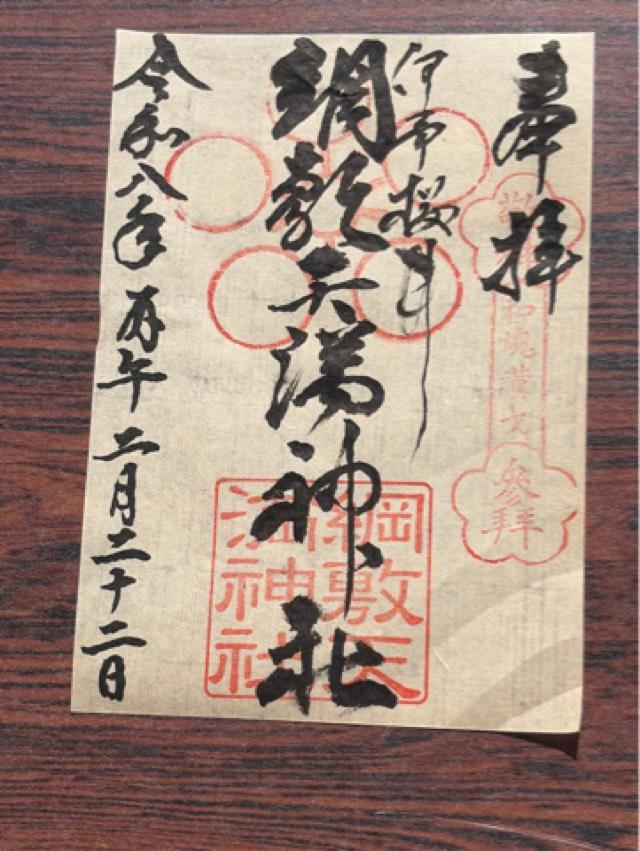 奉拝
和魂漢才
參拝
伊予桜井
綱敷天満神社
綱敷天
満神社
令和八年 丙午 二月二十二日